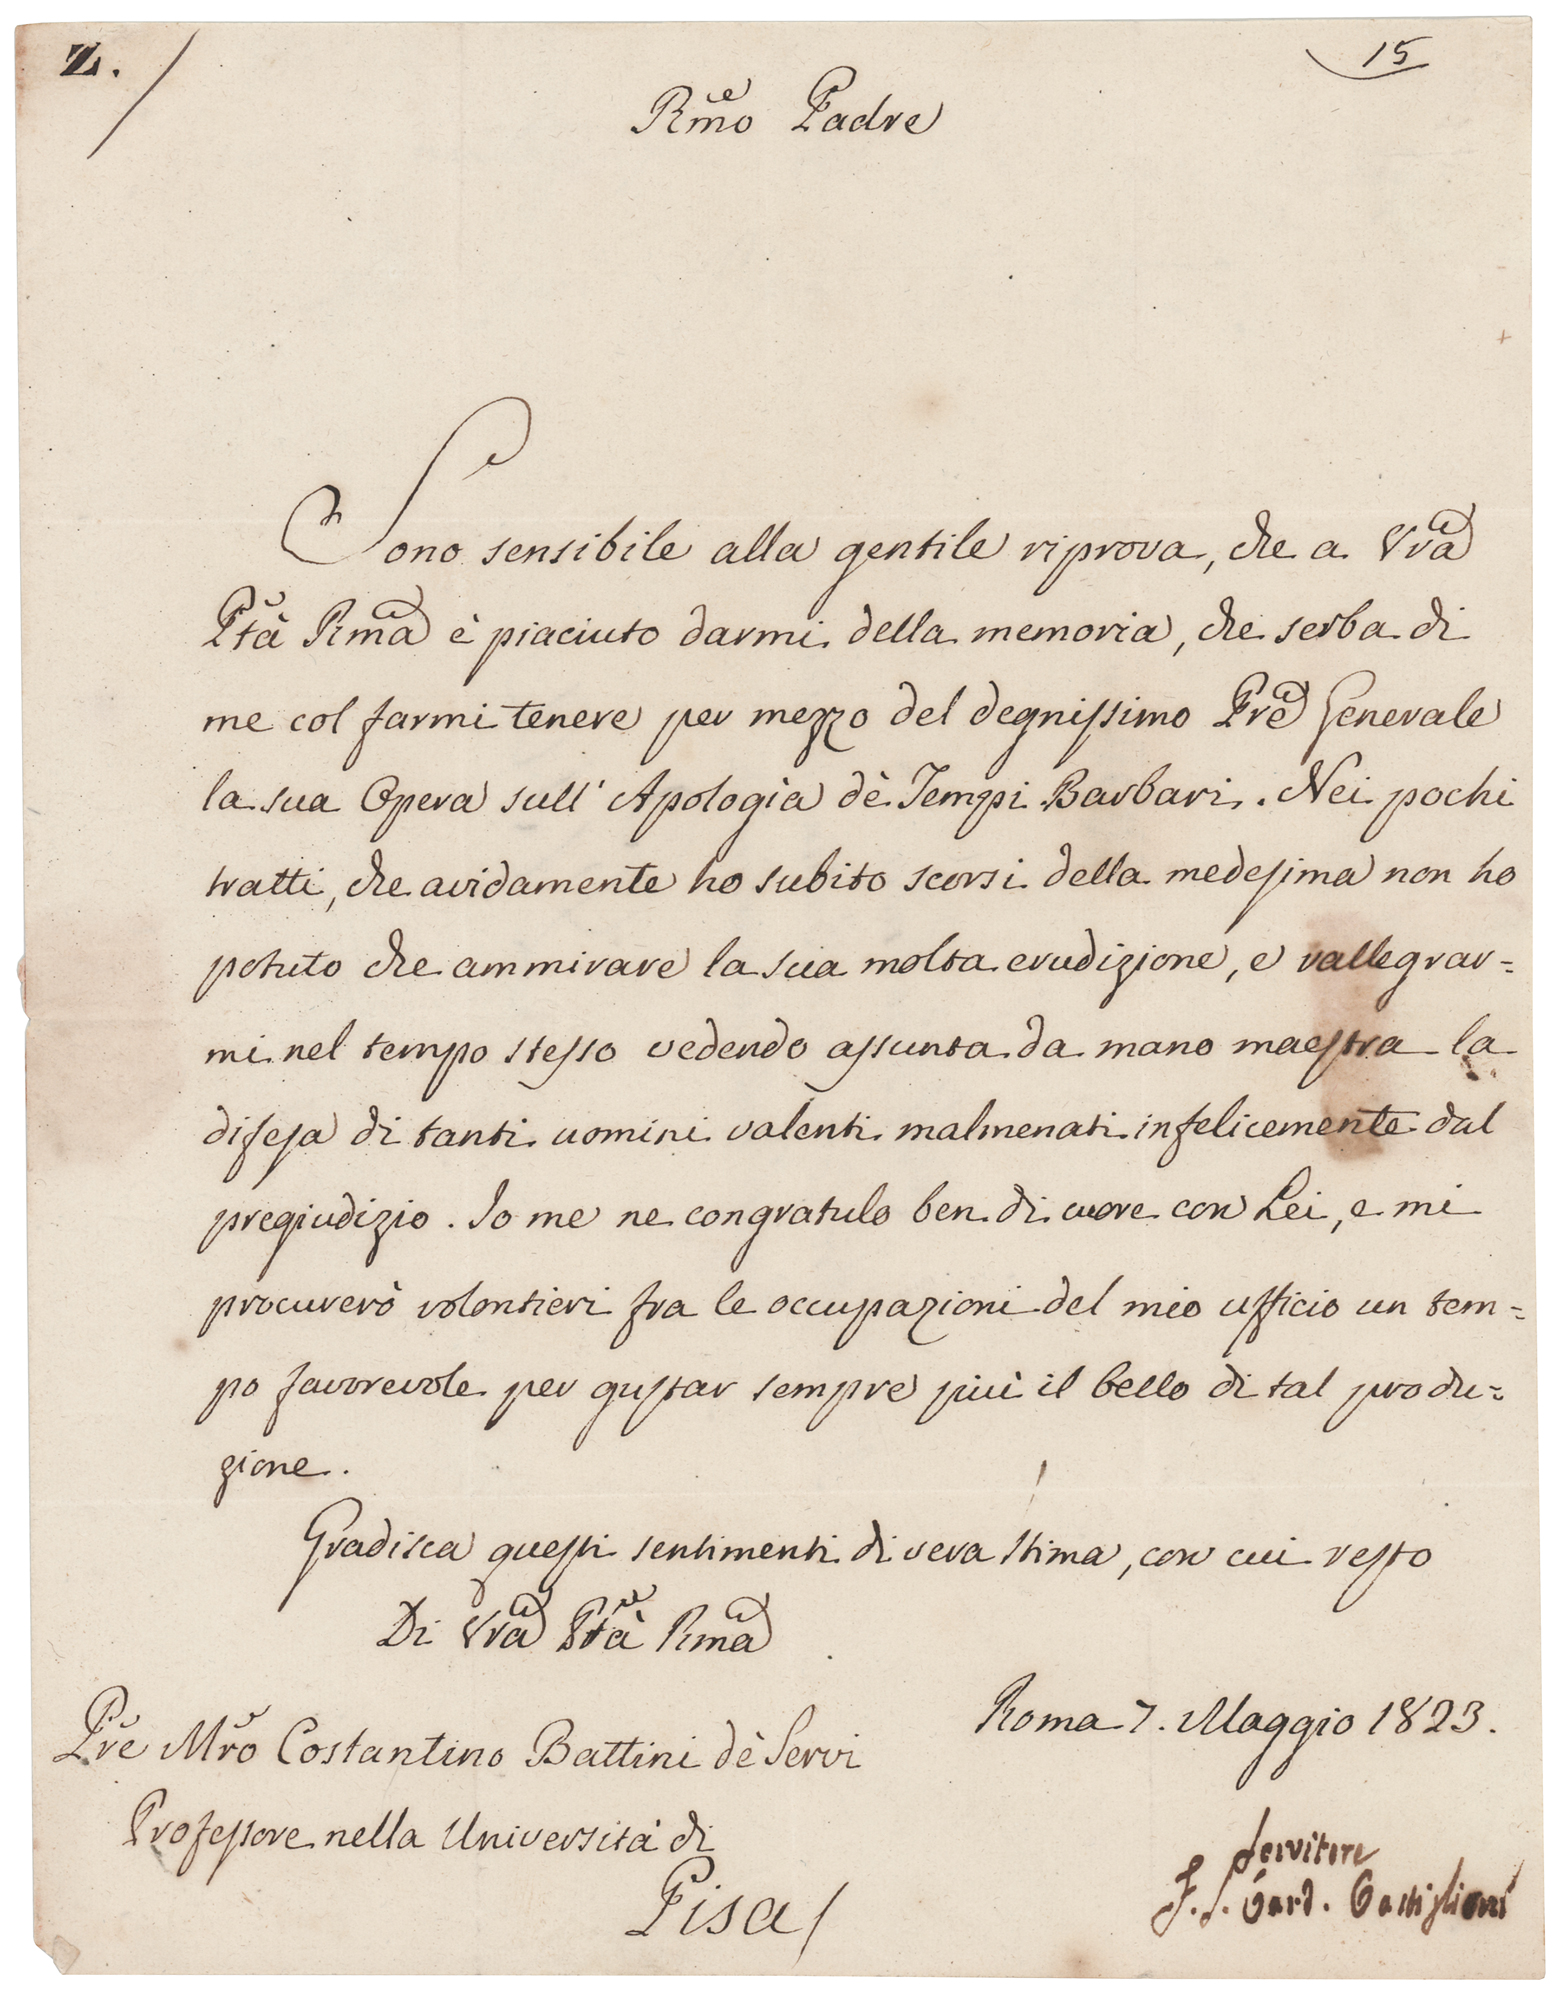 Z. /
15
Rmo Padre
Sono sensibile alla gentile riprova, che a Vra
Ptà Rma è piaciuto darmi della memoria, che serba di
me col farmi tenere per mezzo del degnissimo Pre Generale
la sua Opera sull' Apologia dè Tempi Barbari. Nei pochi
tratti, che avidamente ho subito scorsi della medesima non ho
potuto che ammirare la sua molta erudizione, e rallegrar=
mi nel tempo stesso vedendo assunta da mano maestra la
difesa di tanti uomini valenti malmenati infelicemente dal
pregiudizio. Io me ne congratulo ben di cuore con Lei, e mi
procurerò volontieri fra le occupazioni del mio ufficio un tem=
po favorevole per gustar sempre più il bello di tal produ=
zione.
Gradisca questi sentimenti di vera stima, con cui resto
Di Vra Ptà Rma
Roma 7. Maggio 1823.
Pre Mro Costantino Battini dè Servi
Professore nella Università di
Pisa/
servitore
F. S. Card. Castiglioni